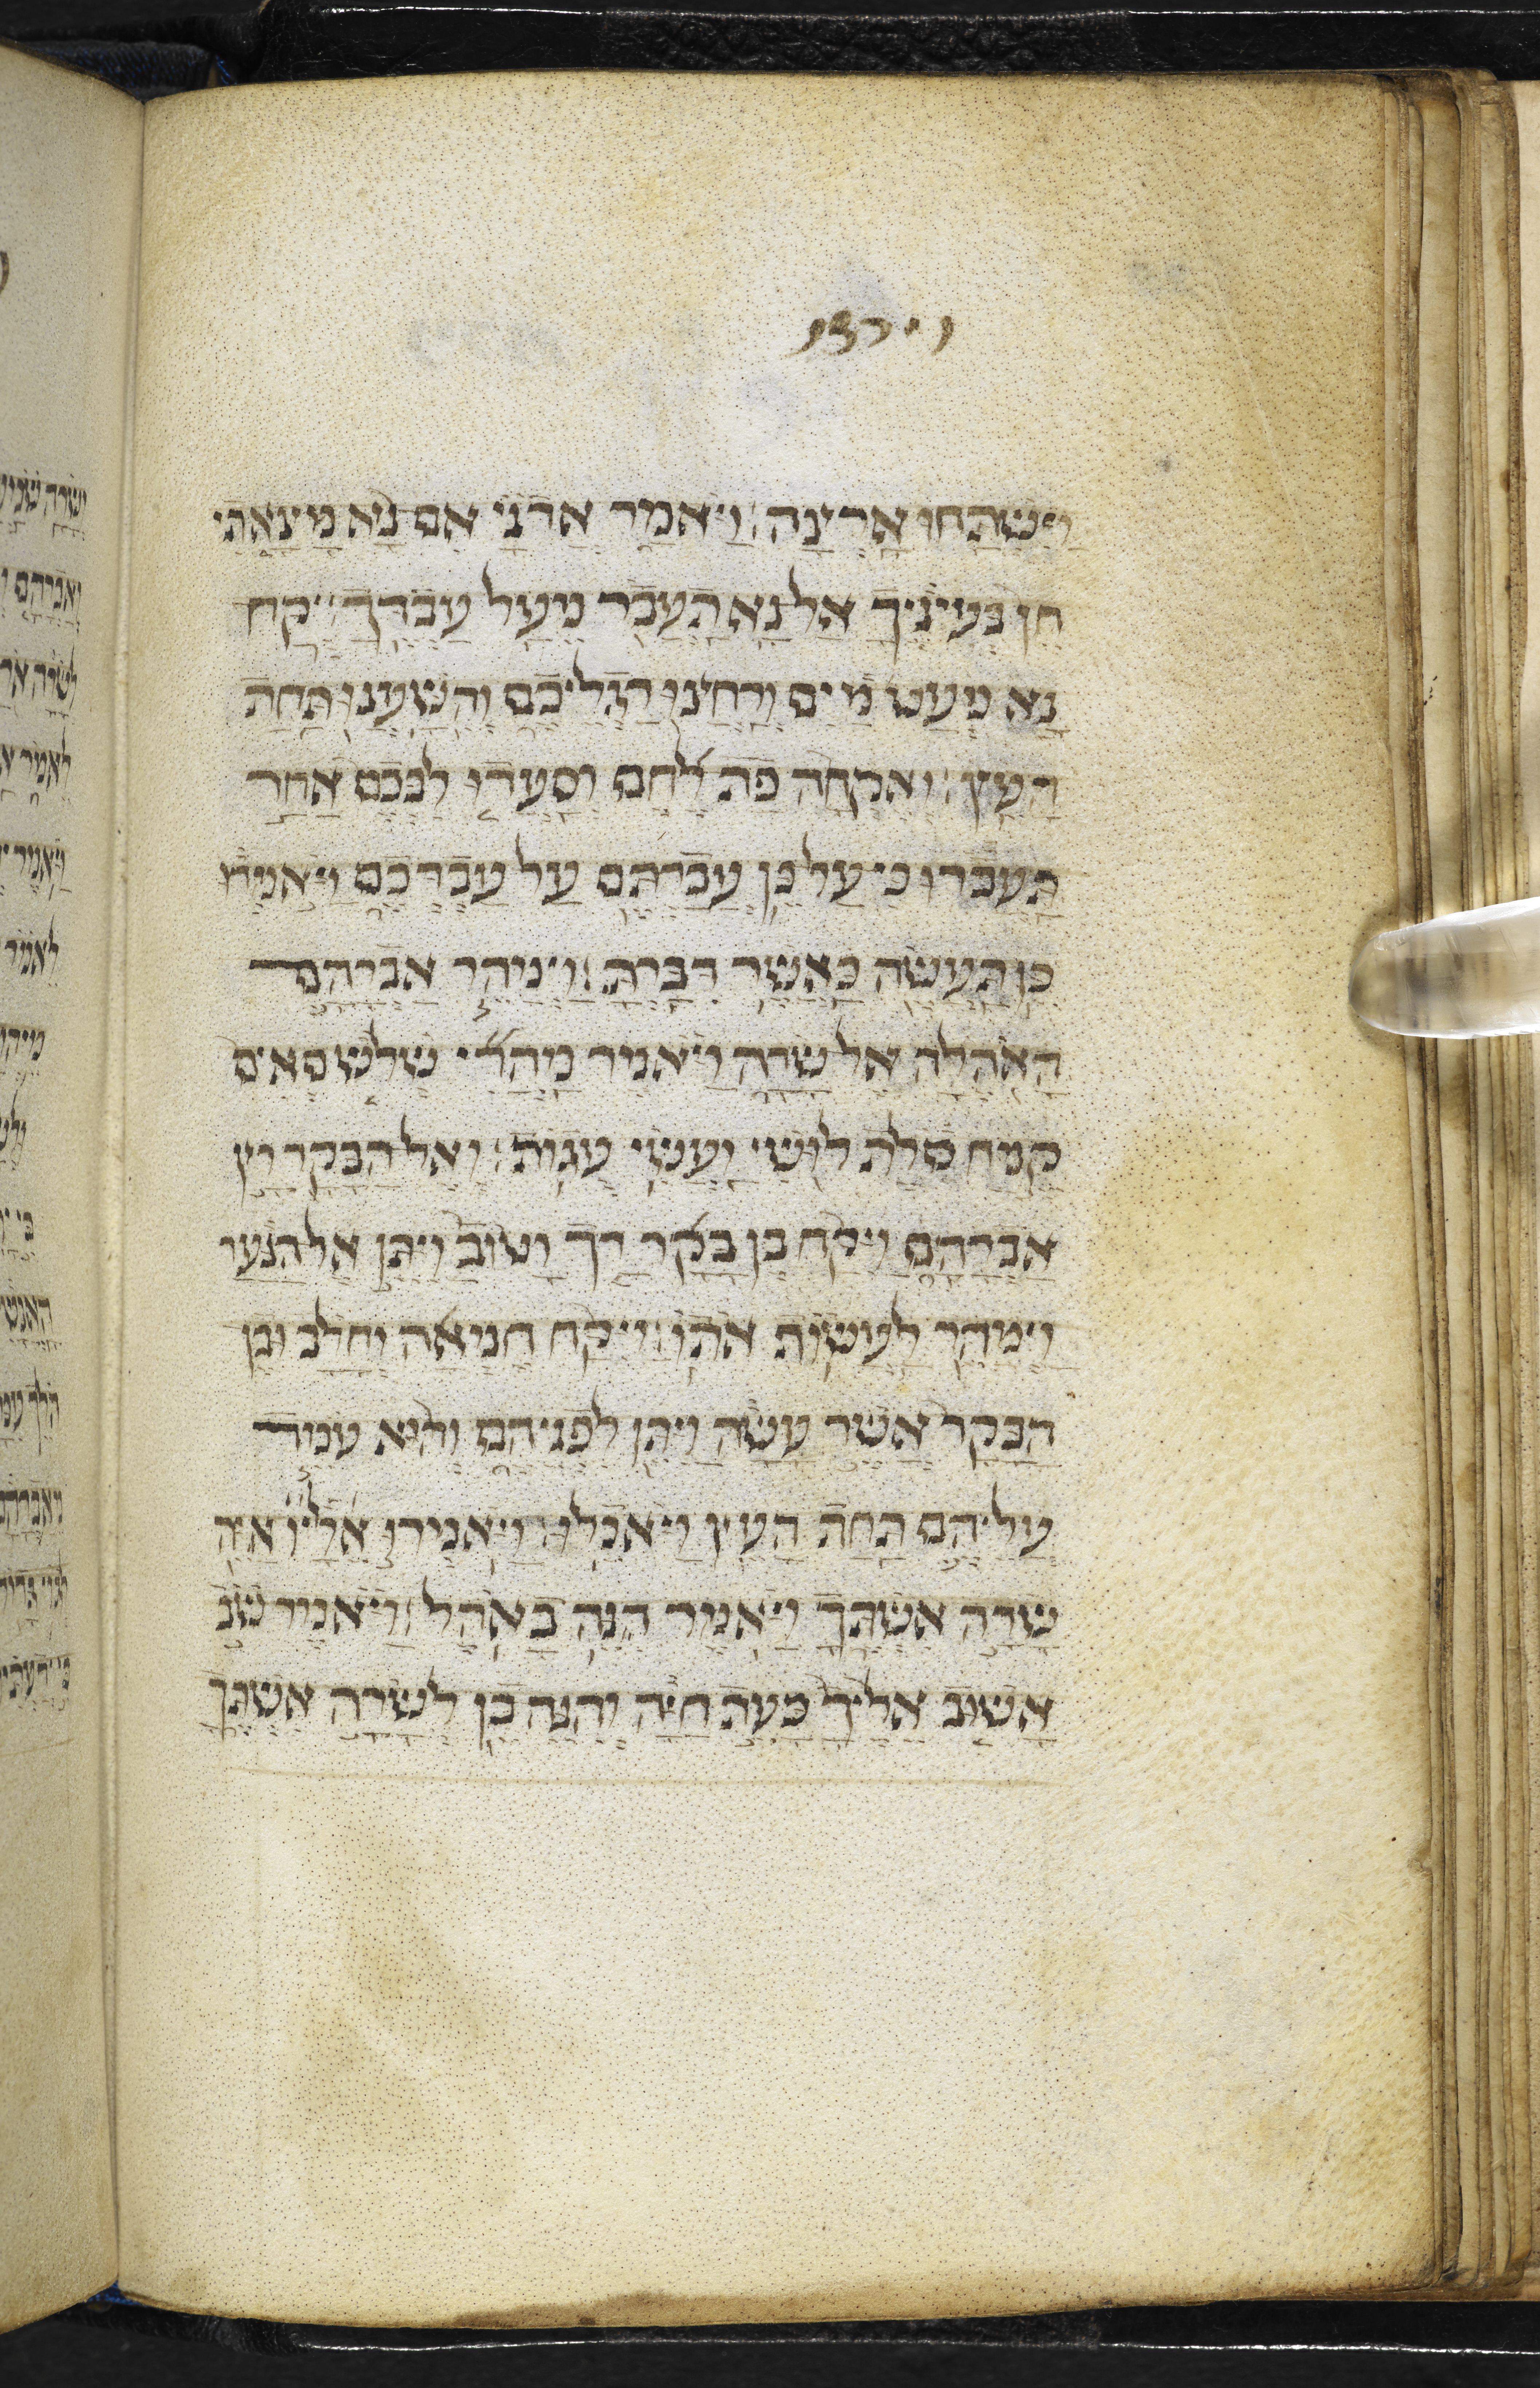 וישתחו ארצה׃ ויאמר אדני אם נא מצאתי
חן בעיניך אל נא תעבר מעל עבדך׃ יקח
נא מעט מים ורחצו רגליכם והשענו תחת
העץ׃ ואקחה פת לחם וסעדו לבכם אחר
תעברו כי על כן עברתם על עבדכם ויאמרו
כן תעשה כאשר דברת׃ וימהר אברהם
האהלה אל שרה ויאמר מהרי שלש סאים
קמח סלת לושי ועשי עגות׃ ואל הבקר רץ
אברהם ויקח בן בקר רך וטוב ויתן אל הנער
וימהר לעשות אתו׃ ויקח חמאה וחלב ובן
הבקר אשר עשה ויתן לפניהם והוא עמד
עליהם תחת העץ ויאכלו׃ ויאמרו אליו איה
שרה אשתך ויאמר הנה באהל׃ ויאמר שוב
אשוב אליך כעת חיה והנה בן לשרה אשתך